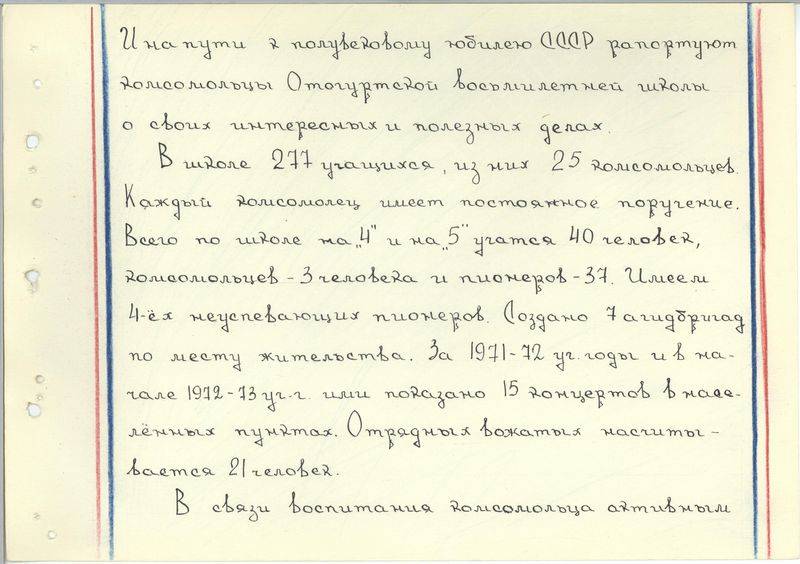 И на пути к полувековому юбилею СССР рапортуют
комсомольцы Отогуртской восьмилетней школы
о своих интересных и полезных делах.
В школе 277 учащихся, из них 25 комсомольцев.
Каждый комсомолец имеет постоянное поручение.
Всего по школе на „4" и на „5" учатся 40 человек,
комсомольцев - 3 человека и пионеров - 37. Имеем
4-ёх неуспевающих пионеров. Создано 7 агидбригад
по месту жительства. За 1971-72 уч. годы и в на-
чале 1972-73 уч. г. ими показано 15 концертов в насе-
лённых пунктах. Отрядных вожатых насчиты-
вается 21 человек.
В связи воспитания комсомольца активным